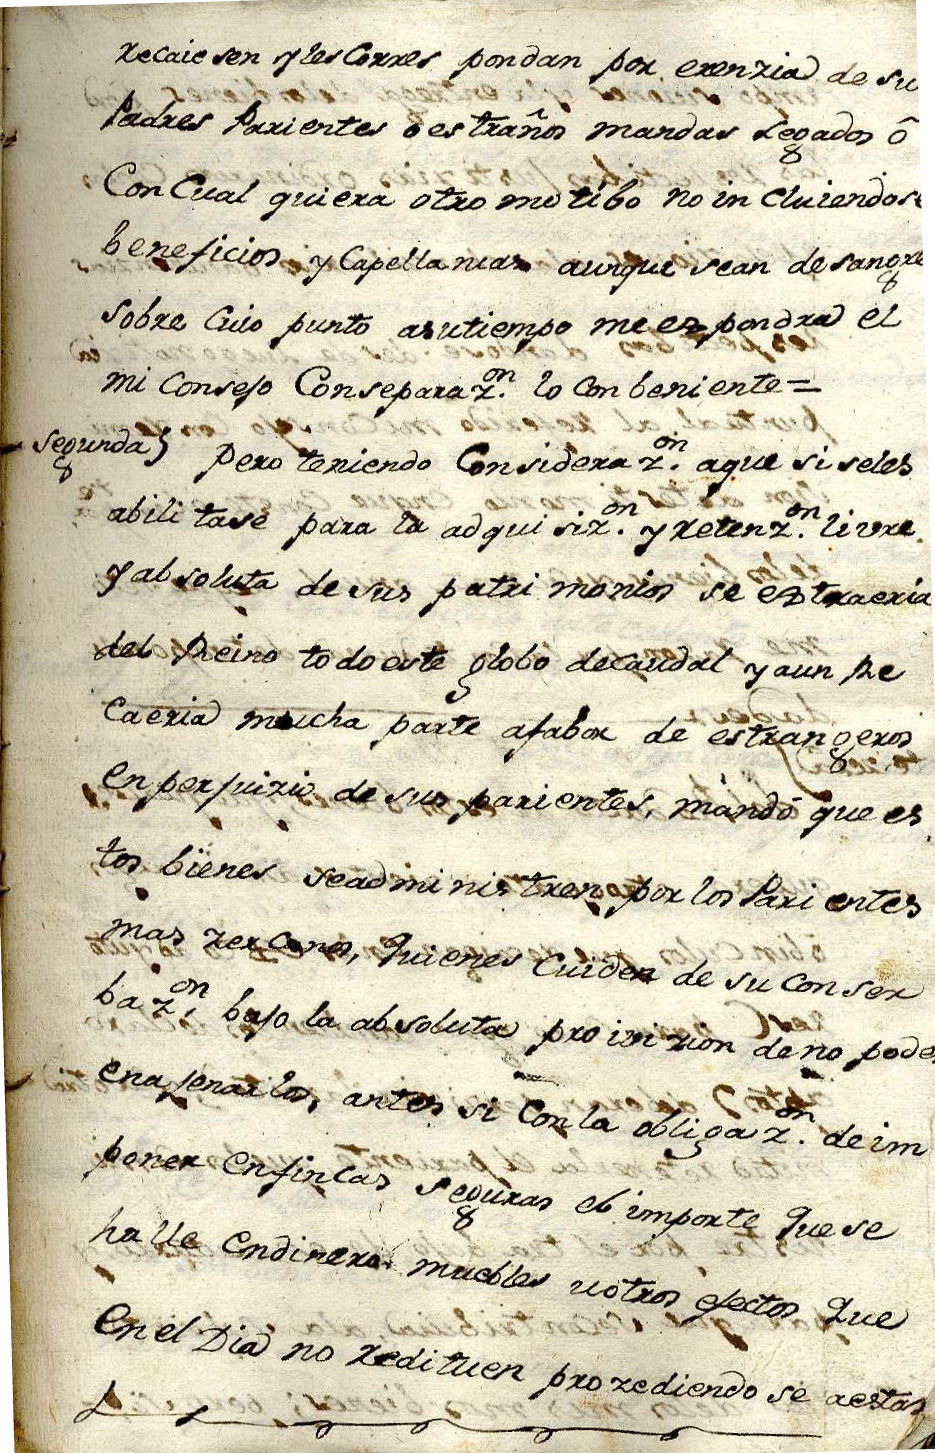 recaiesen y les Corres pondan por erenzia de su
Padres Parientes o estraños mandas Legados ô
Con Cual quiera otro motibo no in Cluiendose
beneficios y Capellanias aunque sean de sangre
sobre Cuio punto asutiempo me espondra el
mi Consejo Conseparazon. lo Combeniente=
segunda} Pero teniendo Considerazon. aque si seles
abilitase para la adquisizon. y Retenzon. livre
y absoluta de sus patrimonios se estraeria
del Reino todo este globo decaudal y aun Re
caeria mucha parte afabor de estrangeros
en perjuizio de sus parientes, mando que es
tos bienes seadministren por los Parientes
mas zercanos, Quienes Cuiden de su Conser
bazon. bajo la absoluta proivizion de no poder
enajenarlos, antes si Con la obligazon. de im
poner enfincas seguras el importe Que se
halle endinero muebles u otros efectos Que
En el Dia no Redituen prozediendo se aestas